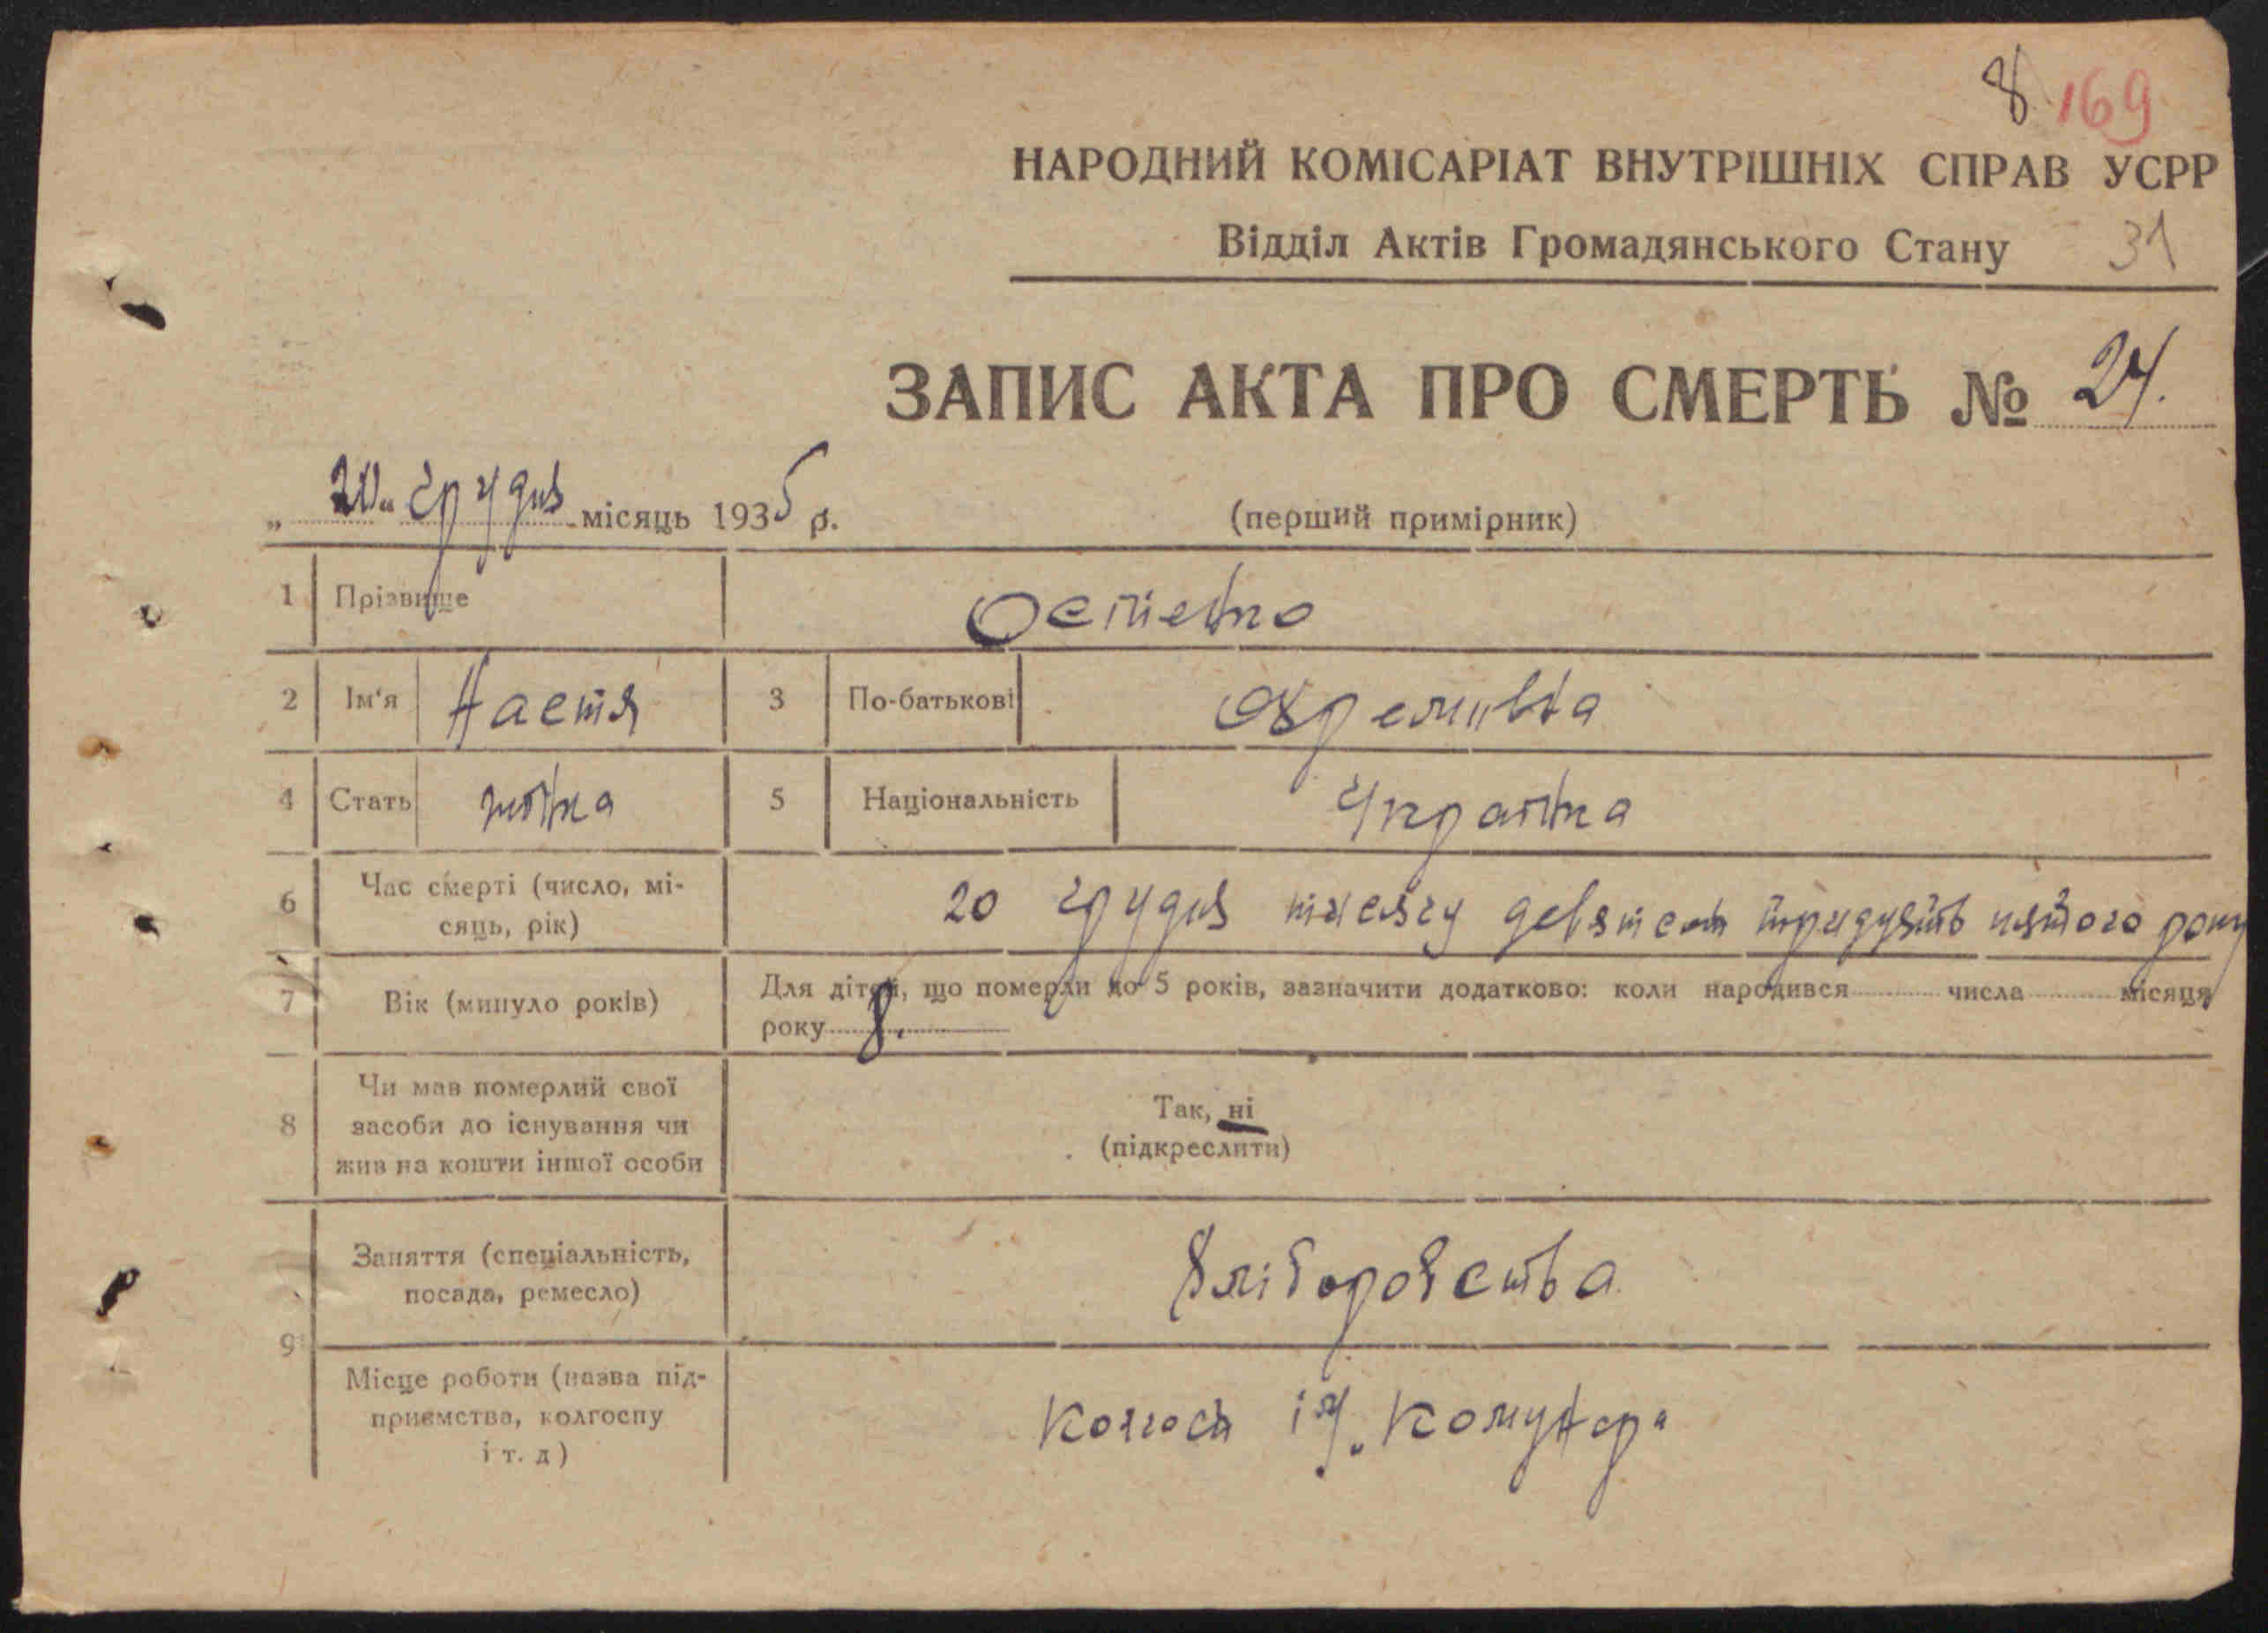 8 169
НАРОДНИЙ КОМІСАРІАТ ВНУТРІШНІХ СПРАВ УСРР
Відділ Актів Громадянського Стану 31
ЗАПИС АКТА ПРО СМЕРТЬ № 24.
„ 20 “ грудня місяць 1935 р. (перший примірник)
1 Прізвище
2 Ім'я Настя 3 По-батькові
4 Стать жінка 5 Національність Українка
6 Час смерті (число, мі-
сяць, рік) 20 грудня девятсот тридцять пятого року
7 Вік (минуло років) Для дітей, що померли до 5 років, зазначити додатково: коли народився числа місяця
року 8.
8 Чи мав померлий свої
засоби до існування чи
жив на кошти іншої особи
Так, ні
(підкреслити)
9 Заняття (спеціальність,
посада, ремесло) Хліборобства
Місце роботи (назва під-
приємства, колгоспу
і т. д) ім. Комунара